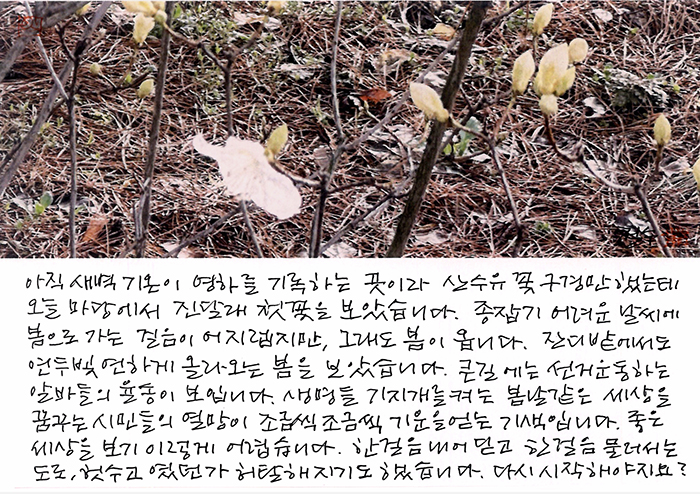 아직 새벽 기온이 영하를 기록하는 곳이라 산수유 꽃 구경만 했는데
오늘 마당에서 진달래 첫 꽃을 보았습니다. 종잡기 어려운 날씨에
봄으로 가는 걸음이 어지럽지만, 그래도 봄이 옵니다. 잔디밭에서도
연두빛 연하게 올라오는 봄을 보았습니다. 큰길에는 선거운동하는
알바들의 율동이 보입니다. 생명들 기지개를 켜는 봄날같은 세상을
꿈꾸는 시민들의 열망이 조금씩 조금씩 기운을 얻는 기색입니다. 좋은
세상을 보기 이렇게 어렵습니다. 한걸음 내어 딛고 한걸음 물러서는
도로, 헛수고였던가 허탈해지기도 했습니다. 다시 시작해야지요?